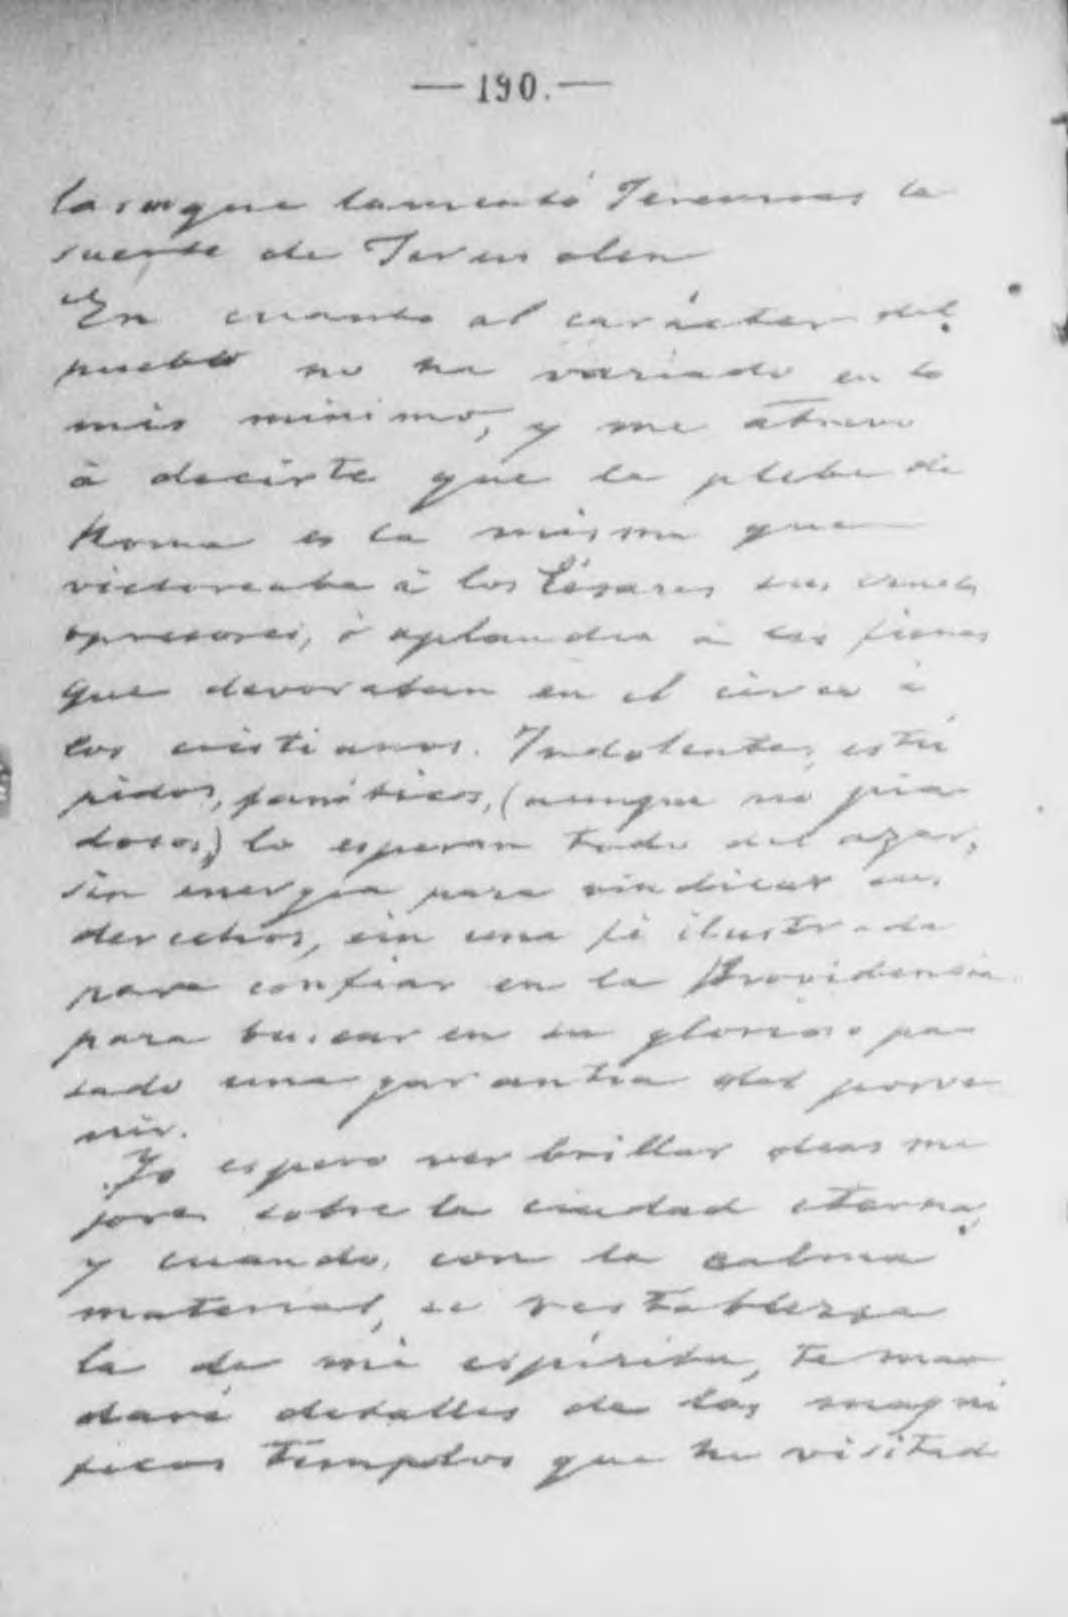 — 190. —
las que lamentó Jeremias la
suerte de Jerusalen
En cuanto al carácter del
pueblo no ha variado en lo
mas minimo, y me atrevo
á decirte que la plebe de
Roma es la misma que
victoreaba á los Césares sus crueles
opresores, ó aplaudia á las fieras
que devoraban en el circo á
los cristianos. Indolentes, estú
pidos, fanáticos, (aunque no pia
dosos,) lo esperan todo del azar,
sin energia para vindicar sus
derechos, sin una fé ilustrada
para confiar en la Providencia
para buscar en su glorioso pa
sado una garantia del porve
nir.
Yo espero ver brillar dias me
jores sobre la ciudad eterna,
y cuando, con la calma
material, se restablezca
la de mi espíritu, te man
daré detalles de los magni
ficos templos que he visitad